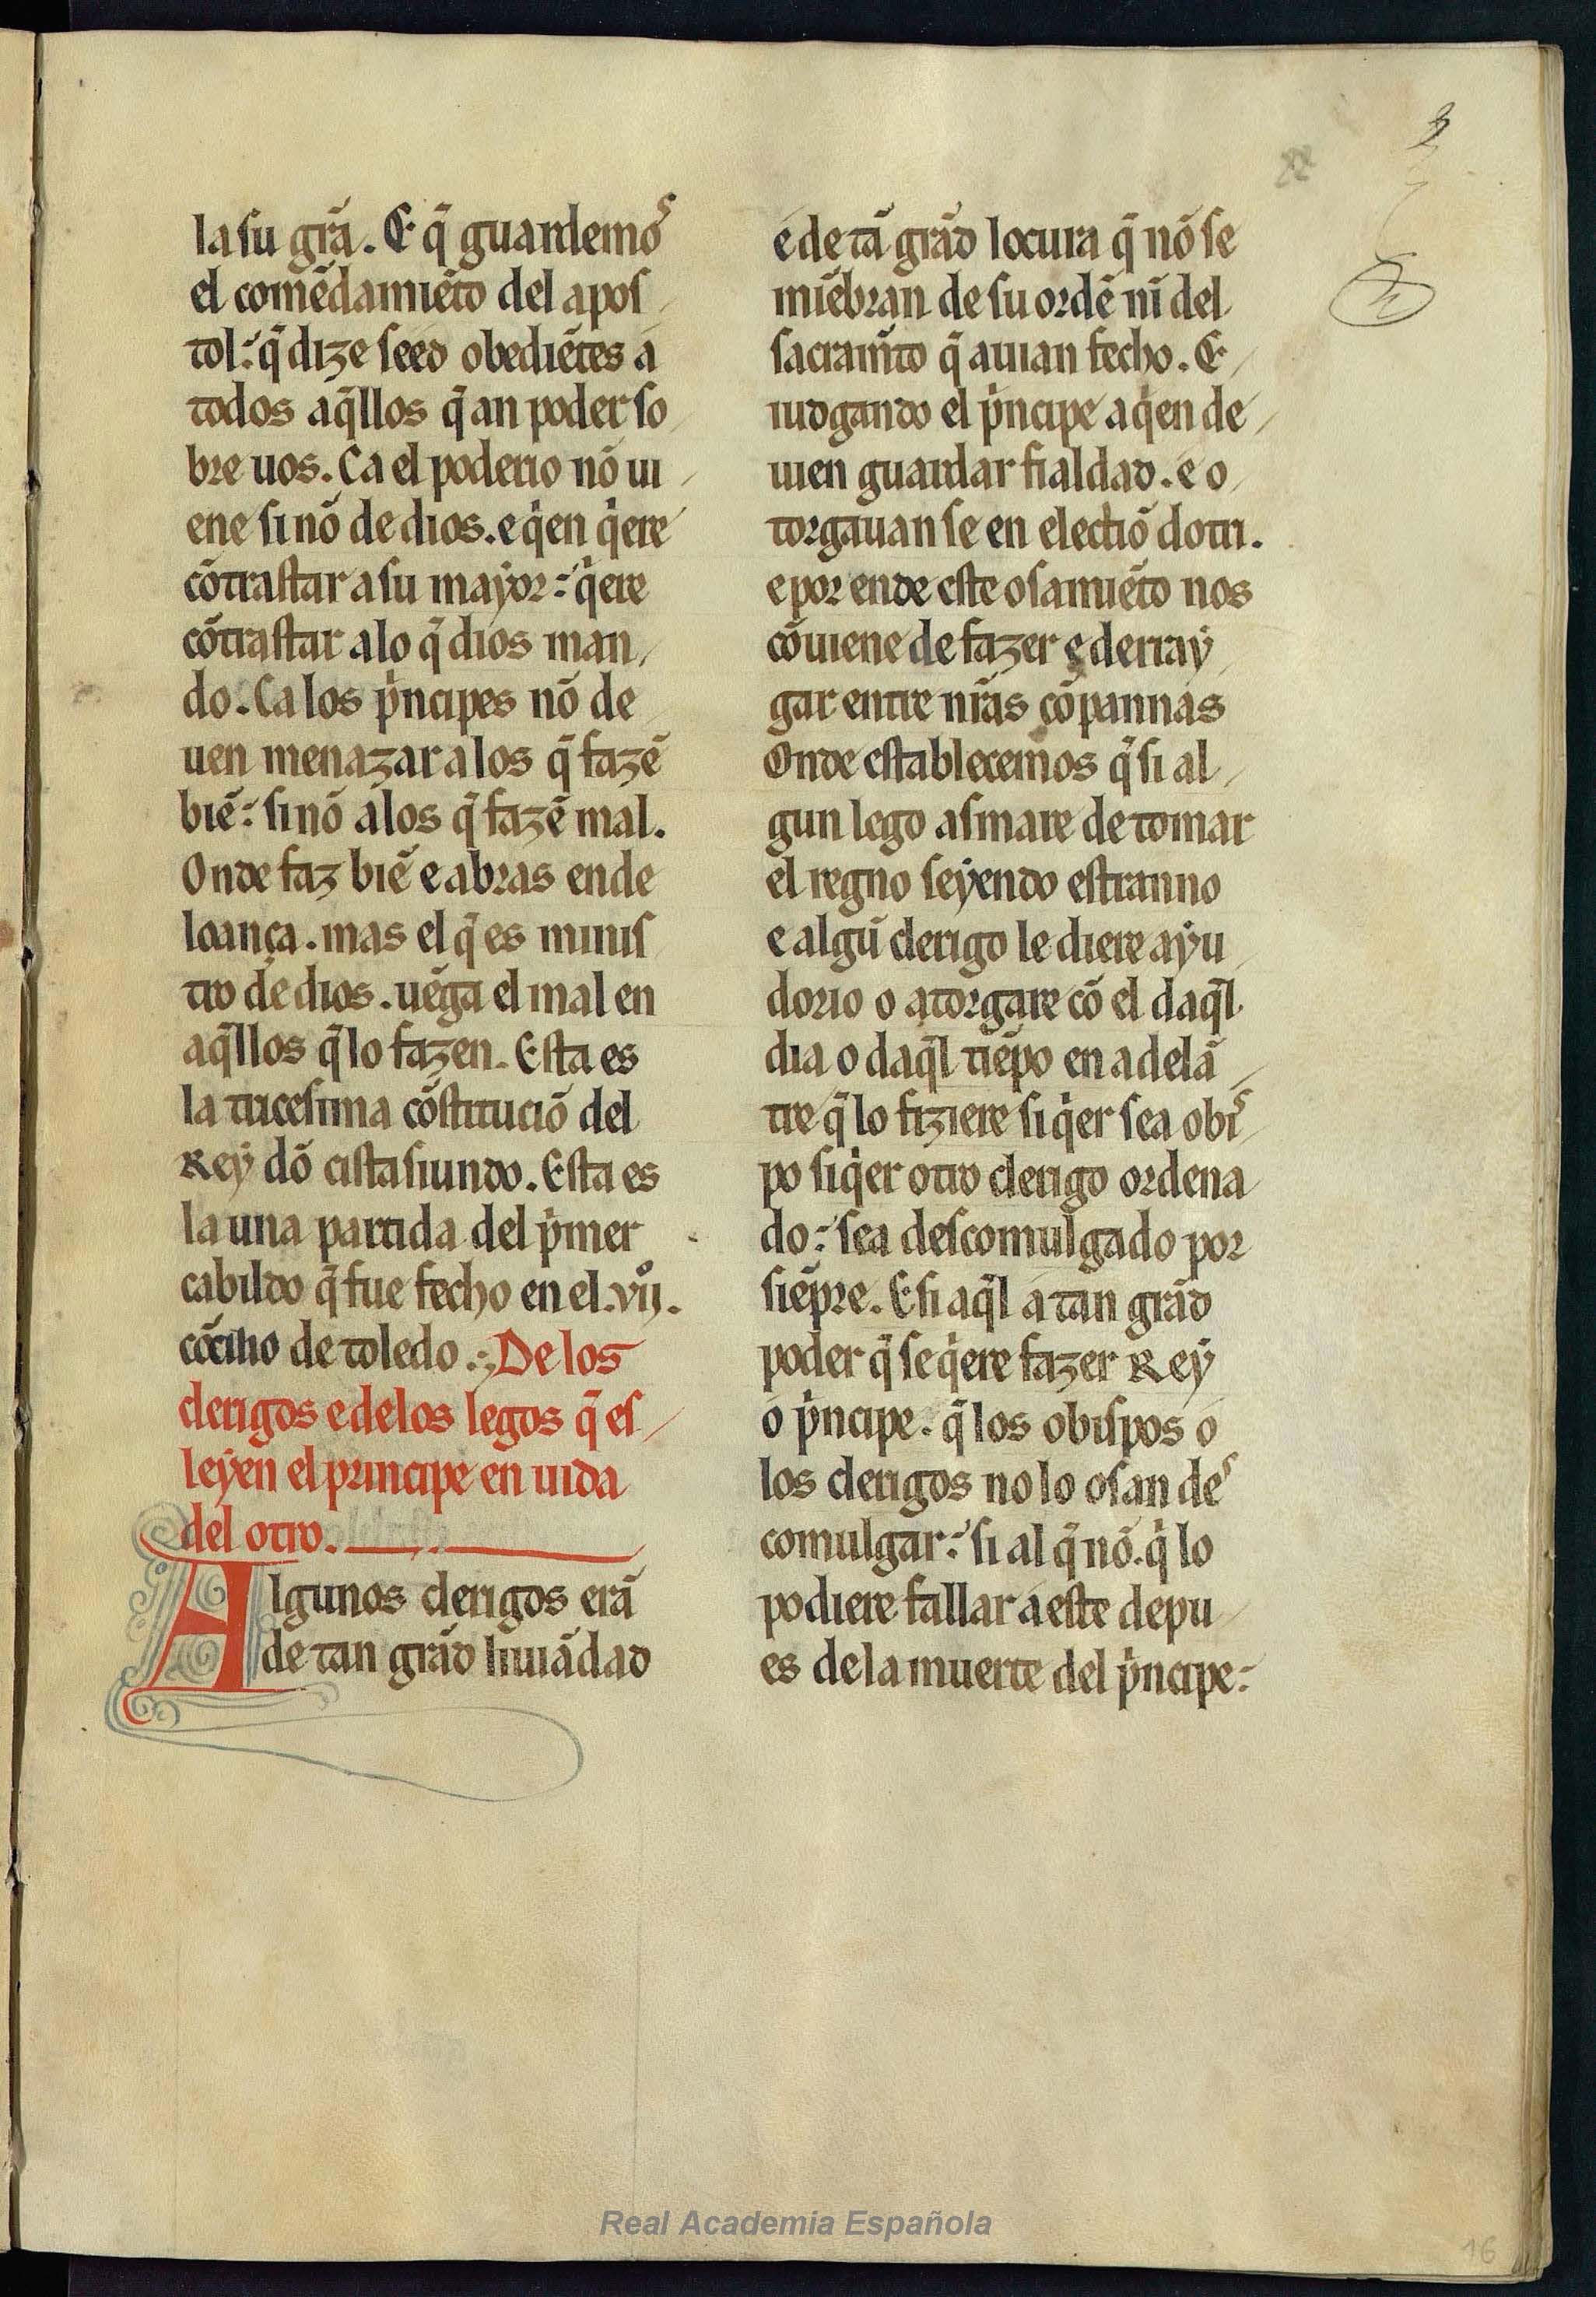 la su gr̃a. E q̃ guardemos
el comẽdamiẽto del apos
tol: q̃ dize seed obediẽtes a
todos aq̃llos q̃ an poder so
bre uos. Ca el poderio nõ ui
ene si nõ de dios. e qͥen qͥere
cõtrastar a su mayor: qͥere
cõtrastar a lo q̃ dios man
do. Ca los pͥncipes nõ de
uen menazar a los q̃ fazẽ
biẽ: si nõ a los q̃ fazẽ mal.
Onde faz biẽ e abras ende
loança. mas el q̃ es minis
tro de dios. uẽga el mal en
aq̃llos q̃ lo fazen. Esta es
la tricesima cõstituciõ del
Rey dõ cistasiundo. Esta es
la una partida del pͥmer
cabildo q̃ fue fecho en el .vijº.
cõcilio de toledo. De los
clerigos e de los legos q̃ es
leyen el principe en uida
del otro.
Algunos clerigos erã
de tan grãd liuiãdad
e de tã grãd locura q̃ nõ se
miẽbran de su ordẽ nĩ del
sacram̃to q̃ auian fecho. E
iudgando el pͥncipe a qͥen de
uien guardar fialdad. e o
torgauan se en electiõ dotri.
e por ende este osamiẽto nos
cõuiene de fazer e derray
gar entre nr̃as cõpannas
Onde establecemos q̃ si al
gun lego asmare de tomar
el regno seyendo estranno
e algũ clerigo le diere ayu
dorio o atorgare cõ el daq̃l
dia o daq̃l tiẽpo en adelã
tre q̃ lo fiziere si qͥer sea obis
po siqͥer otro clerigo ordena
do: sea descomulgado por
siẽpre. E si aq̃l a tan grãd
poder q̃ se qͥere fazer Rey
o pͥncipe. q̃ los obispos o
los clerigos no lo osan des
comulgar: si al q̃ nõ. qͥ lo
podiere fallar a este depu
es de la muerte del pͥncipe:
Real Academia Española
16